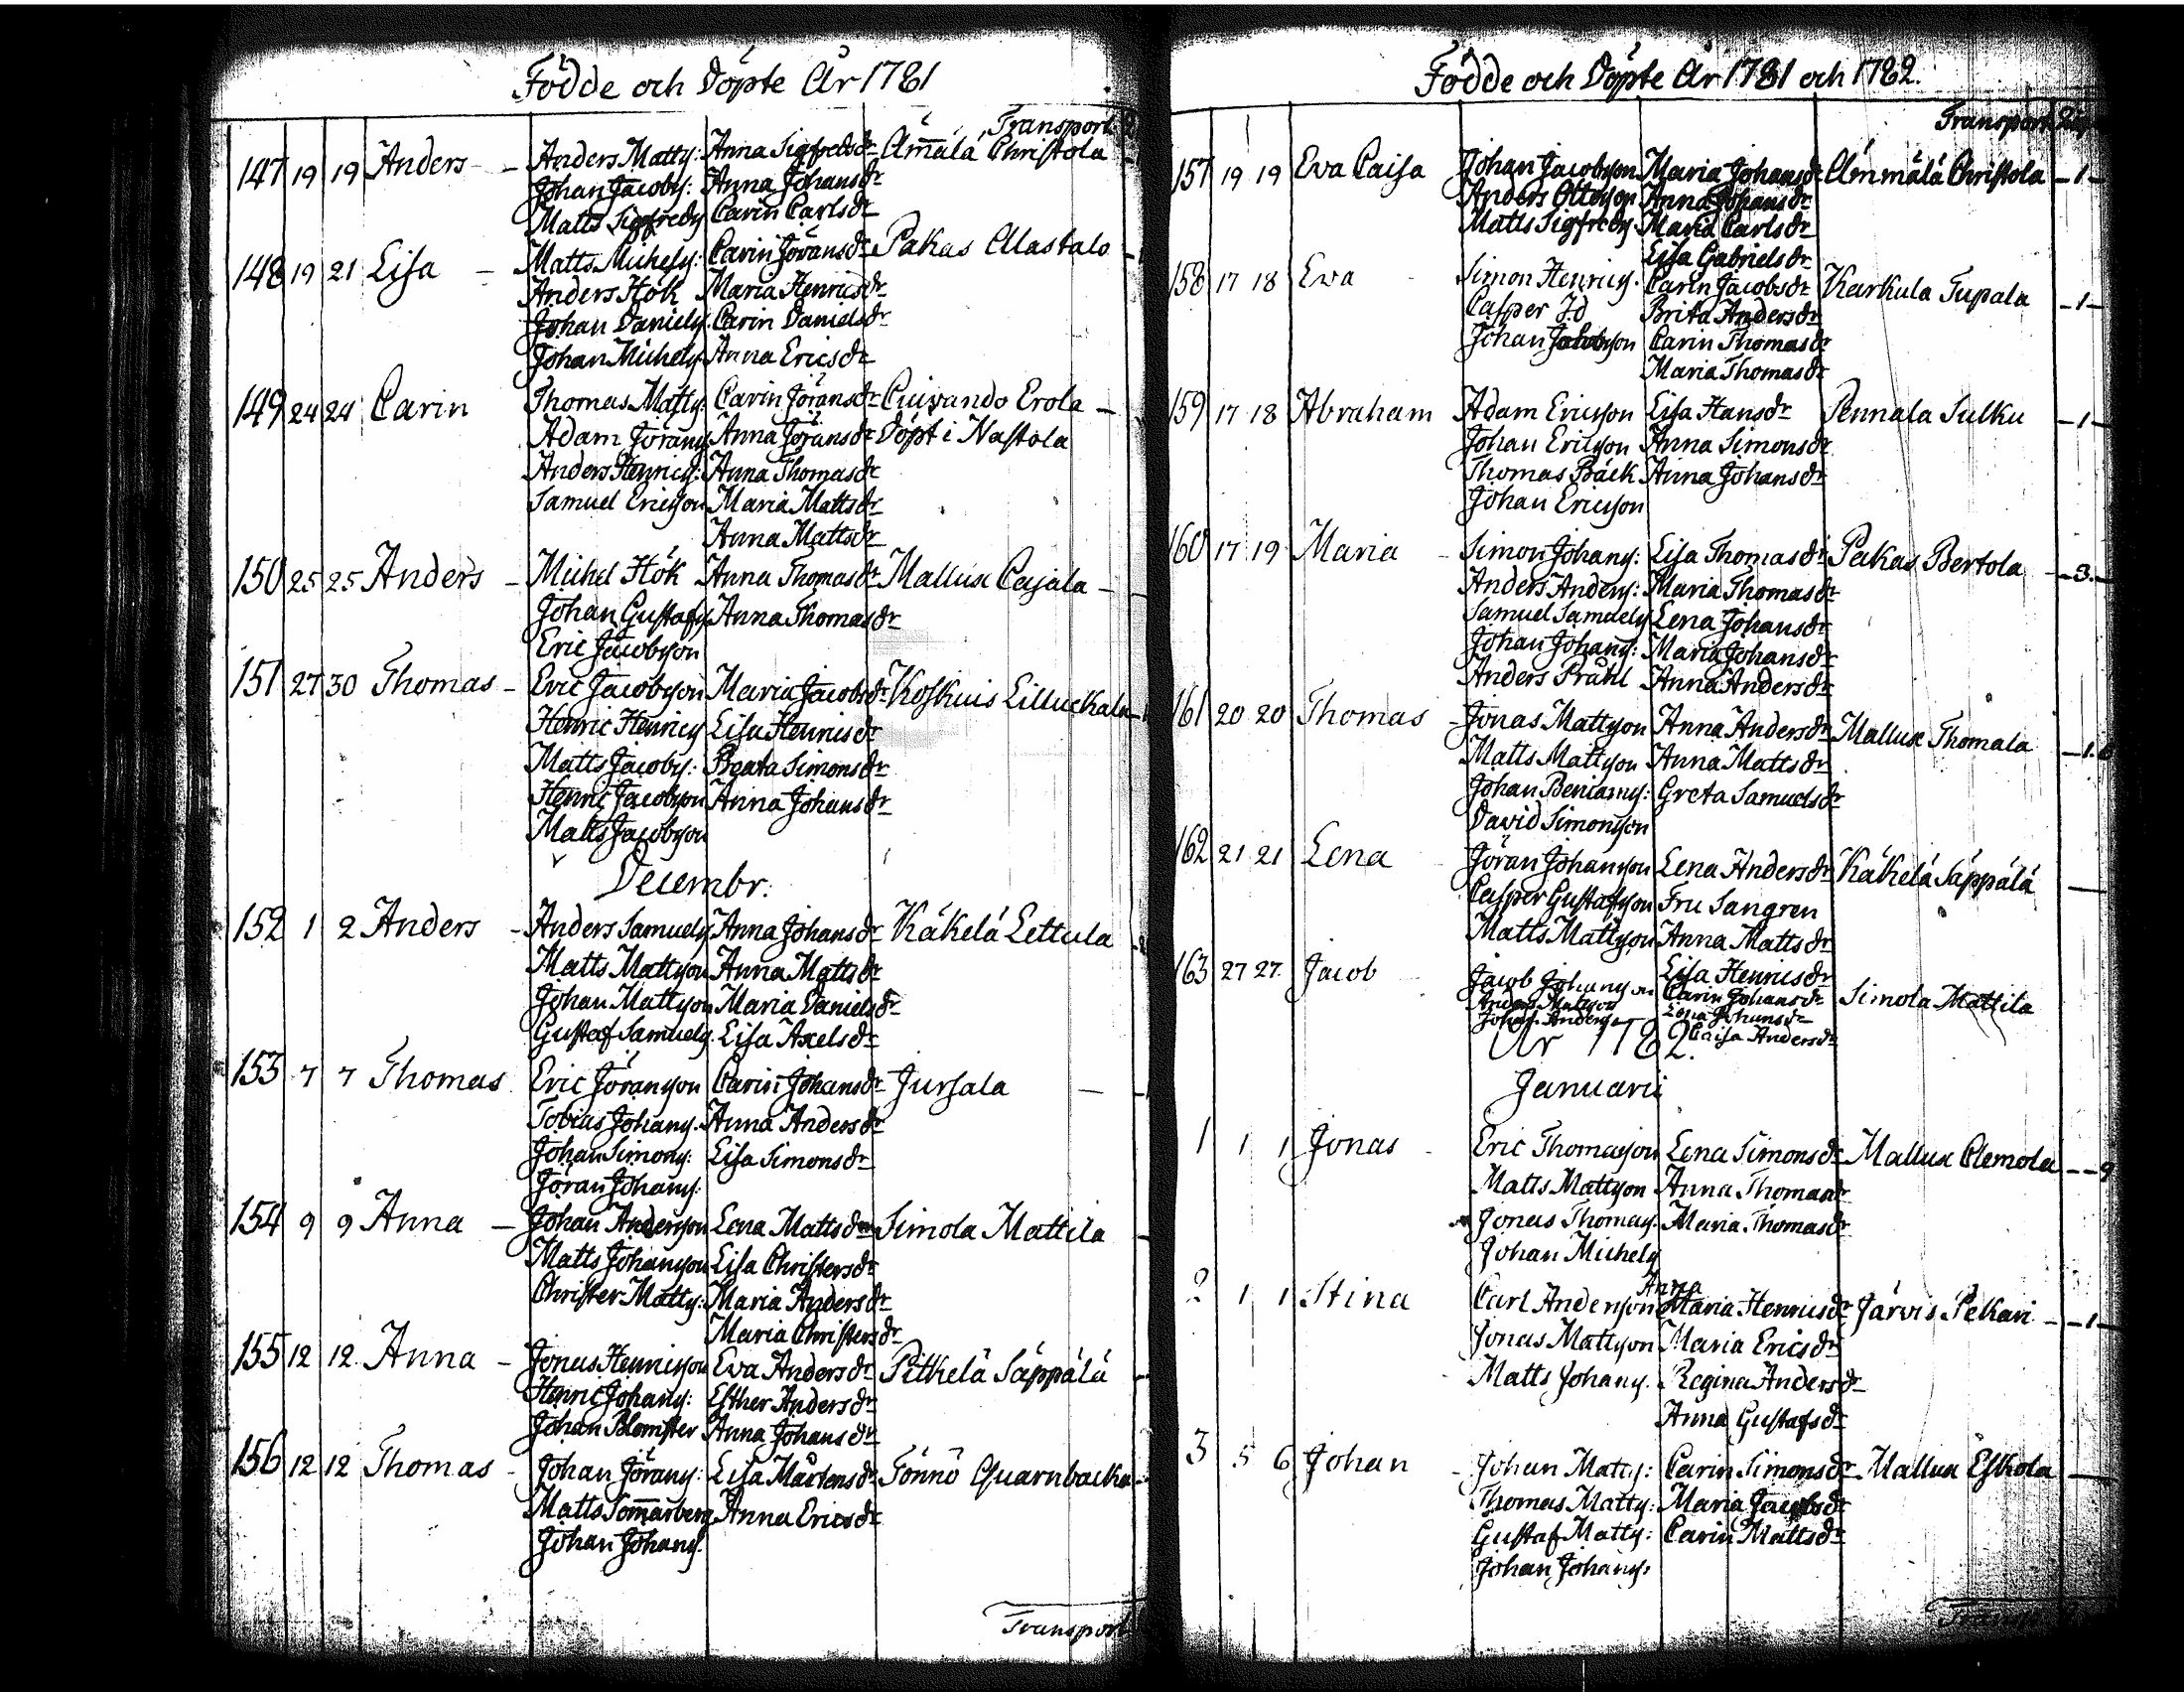 Födde och Döpte År 1781
Transport
147 19 19 Anders - Anders Matts: Anna Sigfredsdr Ämälä Christola
Johan Jacobs: Anna Johansdr
Matts Sigfreds Carin Carlsdr
148 19 21 Lisa - Matts Michels: Carin Jöransdr Pakas Alastalo
Anders Hök Maria Henricsdr
Johan Daniels. Carin Danielsdr
Johan Michels. Anna Ericsdr
149 24 24 Carin Thomas Matts: Carin Jöransdr Cuivando Erola -
Adam Jörans Anna Jöransdr Döpt i Nastola
Anders Henrics: Anna Thomasdr
Samuel Ericsson Maria Mattsdr
Anna Mattsdr
150 25 25 Anders - Michel Hök Anna Thomasdr Mallux Cajala -
Johan Gustafs Anna Thomasdr
Eric Jacobsson
151 27 30 Thomas - Eric Jacobsson Maria Jacobsdr Koskuis Lilluckala
Henric Henrics Lisa Henricsdr
Matts Jacobs: Beata Simonsdr
Henric Jacobson Anna Johansdr
Matts Jacobsson
Decembr:
152 1 2 Anders - Anders Samuels Anna Johansdr Käkelä Lettula
Matts Mattsson Anna Mattsdr
Johan Mattsson Maria Danielsdr
Gustaf Samuels. Lisa Axelsdr
153 7 7 Thomas Eric Jöransson Carin Johansdr Jursala -
Tobias Johans. Anna Andersdr
Johan Simons: Lisa Simonsdr
Jöran Johans:
154 9 9 Anna - Johan Andersson Lena Mattsdr Simola Mattila
Matts Johansson Lisa Christersdr
Christer Matts: Maria Andersdr
Maria Christersdr
155 12 12 Anna - Jonas Henricsson Eva Andersdr Pitkelä Säppälä
Henric Johans: Esther Andersdr
Johan Blomster Anna Johansdr
156 12 12 Thomas - Johan Jörans: Lisa Mårtensdr Tönnö Quarnbacka
Matts Somarberg Anna Ericsdr
Johan Johans.
Transport
Födde och Döpte År 1781 och 1782.
Transport
157 19 19 Eva Caisa Johan Jacobsson Maria Johansdr Ämmälä Christola - 1 -
Anders Ottosson Anna Johansdr
Matts Sigfreds. Maria Carlsdr
Lisa Gabrielsdr
158 17 18 Eva Simon Henrics. Carin Jacobsdr Karkula Tupala - 1 -
Casper Id Brita Andersdr
Johan Jacobsson Carin Thomasdr
Maria Thomasdr
159 17 18 Abraham Adam Ericsson Lisa Hansdr Pennala Sulku - 1 -
Johan Ericsson Anna Simonsdr
Thomas Bäck Anna Johansdr
Johan Ericsson
160 17 19 Maria - Simon Johans: Lisa Thomasdr Pakas Bertola - 3. -
Anders Anders: Maria Thomasdr
Samuel Samuels Lena Johansdr
Johan Johans: Maria Johansdr
Anders Pråhl Anna Andersdr
161 20 20 Thomas - Jonas Mattsson Anna Andersdr Mallux Thomala - 1.
Matts Mattsson Anna Mattsdr
Johan Beniams: Greta Samuelsdr
David Simonsson
162 21 21 Lena Jöran Johansson Lena Andersdr Käkelä Säppälä -
Casper Gustafsson Fru Sangren
Matts Mattsson Anna Mattsdr
Lisa Henricsdr
163 27 27 Jacob Jacob Johansson Carin Johansdr Simola Mattila
Anders Matsson Lena Johansdr
Johan Anderss Caisa Andersdr
År 1782.
Januarii
1 1 1 Jonas - Eric Thomasson Lena Simonsdr Mallux Clemola - - 9
Matts Mattsson Anna Thomasdr
Jonas Thomas. Maria Thomasdr
Johan Michels
Anna
2 1 1 Stina Carl Andersson Maria Henricsdr Järvis Pekari - - 1 -
Jonas Mattsson Maria Ericsdr
Matts Johans. Regina Andersdr
Anna Gustafsdr
3 5 6 Johan - Johan Matts: Carin Simonsdr Mallux Eskola -
Thomas Matts: Maria Jacobsdr
Gustaf Matts: Carin Mattsdr
Johan Johans: